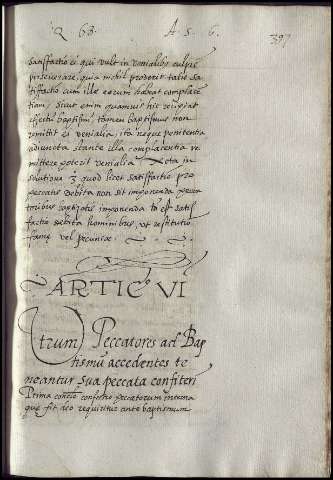 Q 68. A. 5. 6. 397
satisfactio ei qui vult in venialibus culpis
perseverare, quia nihil proderit talis sa
tisfactio cum ille eorum habeat complacen
tiam, sicut enim quamvis hic recipiat
effectũ baptismi tamen baptismus non
remittit ei venialia, ita neque penitentia
adiuncta stante illa complacentia re
mittere poterit venialia. Nota in
solutione 3 quod licet satisfactio pro
peccatis debita non sit imponenda pecca
toribus baptizatis imponenda tñ est satis
factio debita hominibus, ut restitutio
famę vel pecuniæ.
ARTIC° VI
Utrum Peccatores ad Bap
tismũ accedentes te
neantur sua peccata confiteri
Prima conclusio confessio peccatorum interna
que fit deo requiritur ante baptismum